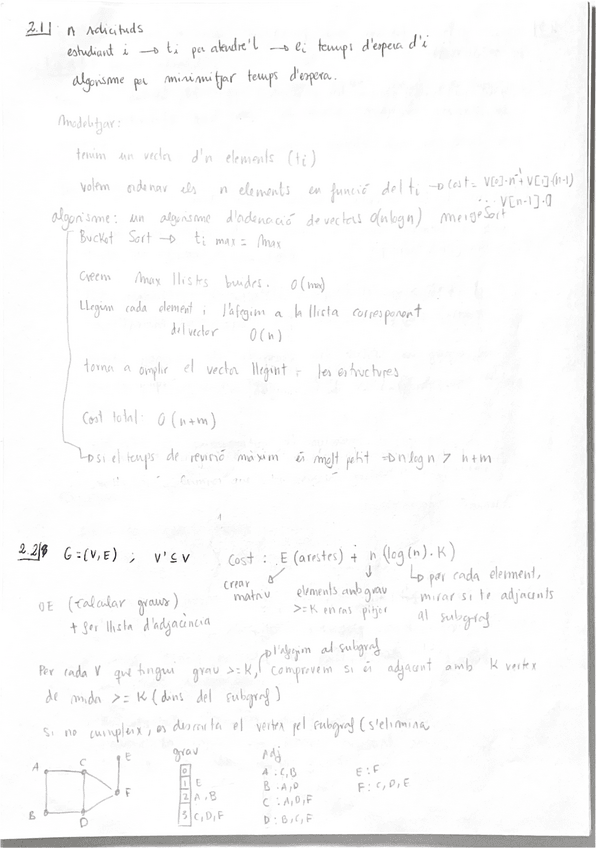 2.1| n sol·licituds
estudiant i → ti per atendre'l → ei temps d'espera d'i
algorisme per minimitzar temps d'espera.
Modelitzar:
tenim un vector d'n elements (ti)
volem ordenar els n elements en funció del ti → cost = V[0]·n-1 + V[1]·(n-1)
... V[n-1]·0
algorisme: un algorisme d'ordenació de vectors O(n log n) mergeSort
Bucket Sort → ti max = Max
Creem Max llistes buides. O(m)
Llegim cada element i l'afegim a la llista corresponent
del vector O(n)
torna a omplir el vector llegint les estructures
Cost total: O(n+m)
→ si el temps de revisió màxim és molt petit ⇒ n log n > n+m
2.2| G=(V,E) ; V'⊆V cost : E (arestes) + n (log(n)·K)
crear matriu
elements amb grau >=K en cas pitjor
per cada element, mirar si te adjacents al subgraf
OE (calcular graus)
+ fer llista d'adjacència
l'afegim al subgraf
Per cada V que tingui grau >=K, comprovem si és adjacent amb K vertex
de mida >= K (dins del subgraf)
si no compleix, es descarta el vertex pel subgraf (s'elimina
A C E
B D F
grau
0
1 E
2 A,B
3 C,D,F
Adj
A : C,B
B : A,D
C : A,D,F
D : B,C,F
E : F
F : C,D,E